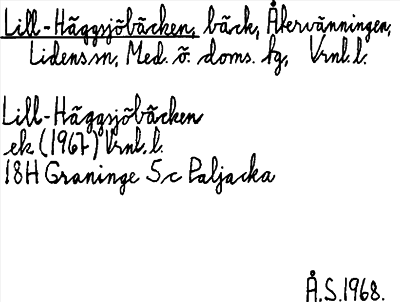 Lill-Häggsjöbäcken, bäck, Återvänningen,
Lidens sn, Med. ö. doms. fg, Vrnl.l.
Lill-Häggsjöbäcken
ek (1967) Vrnl.l.
18H Graninge 5c Paljacka
Å.S. 1968.